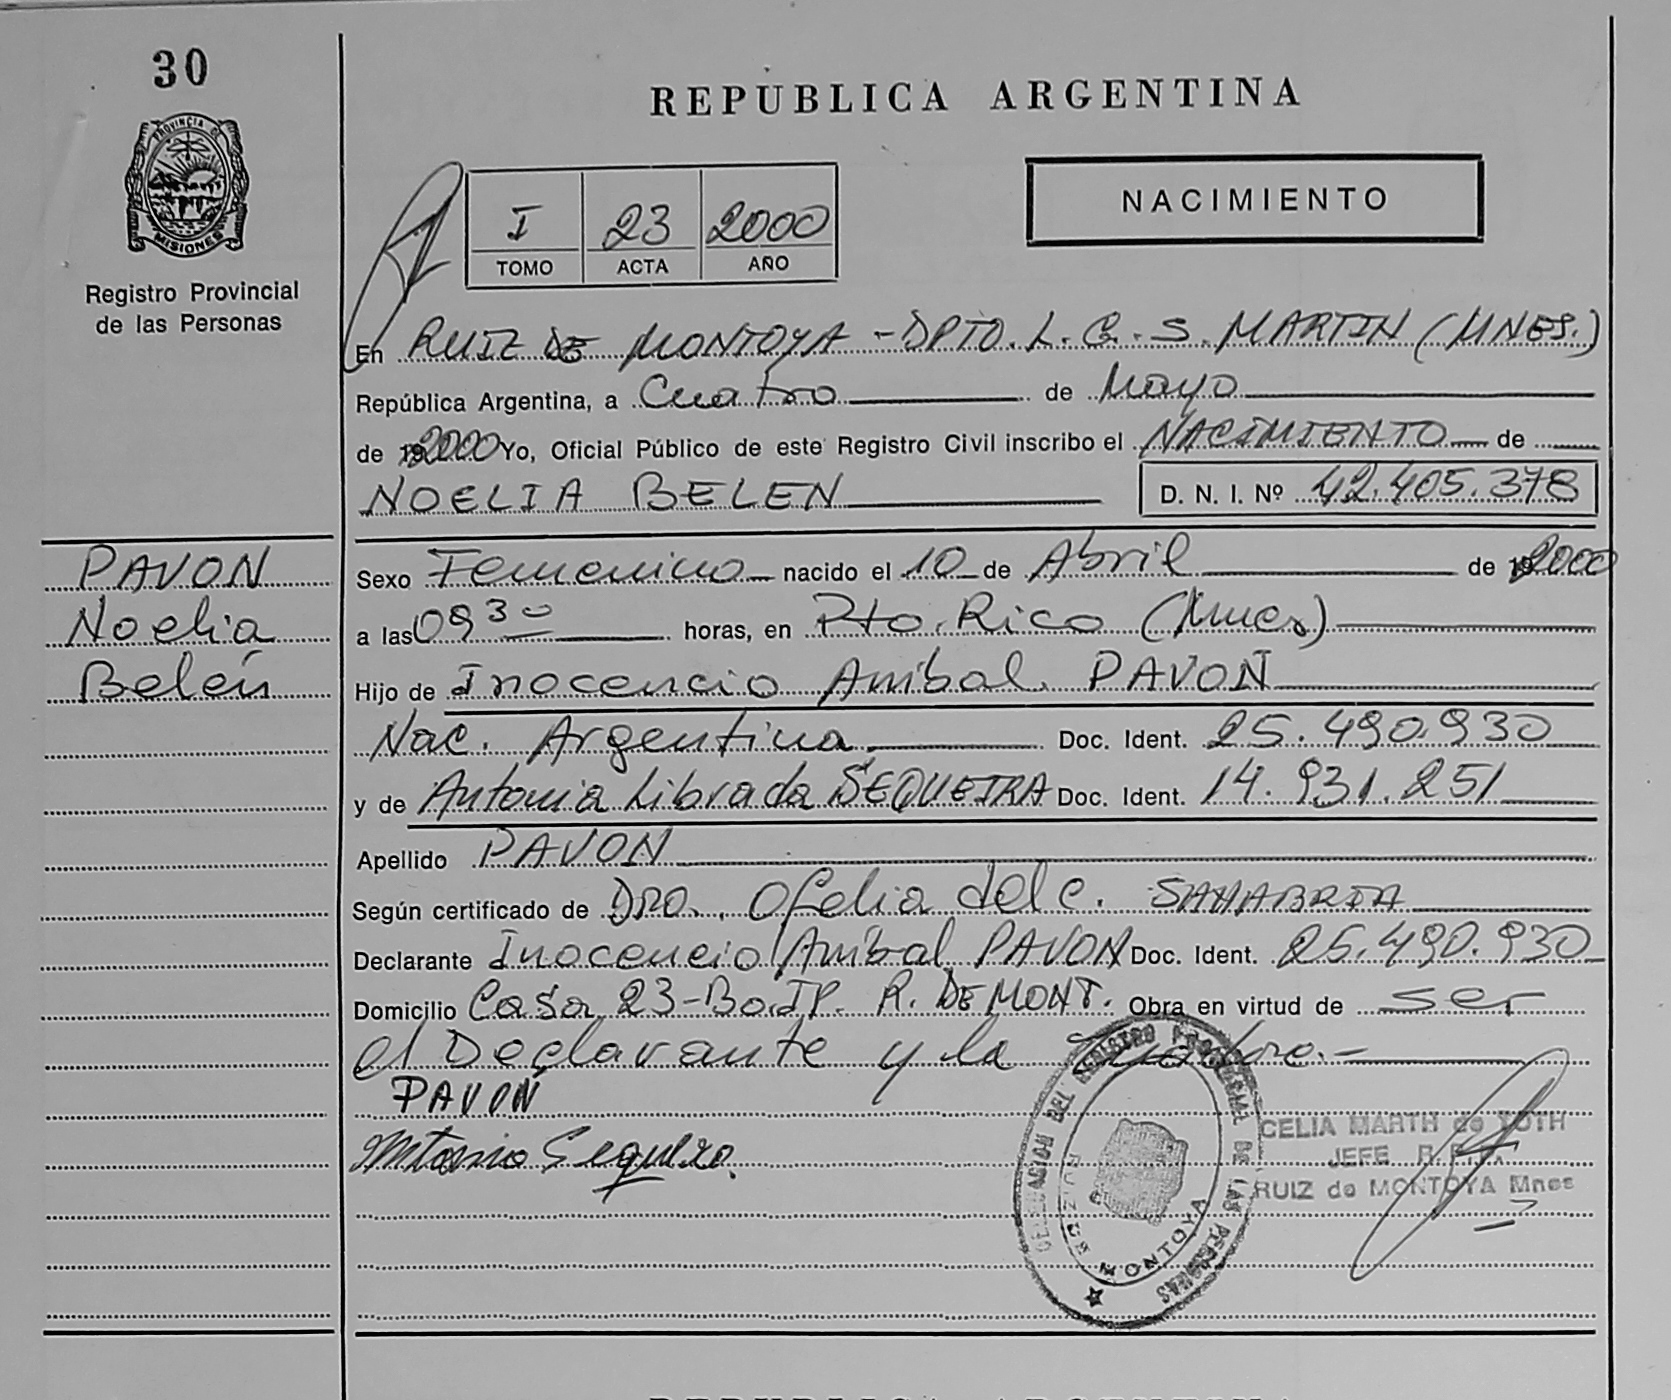 30
REPUBLICA ARGENTINA
PROVINCIA DE
MISIONES
Registro Provincial
de las Personas
I 23 2000
TOMO ACTA AÑO
NACIMIENTO
En RUIZ DE MONTOYA - DPTO. L. G. S. MARTIN (MNES.)
República Argentina, a Cuatro de Mayo
de 2000 Yo, Oficial Público de este Registro Civil inscribo el NACIMIENTO de
NOELIA BELEN D. N. I. Nº 42.405.378
PAVON
Noelia
Belén
Sexo Femenino nacido el 10 de Abril de 2000
a las 09 30 horas, en Pto. Rico (Mnes)
Hijo de Inocencio Anibal PAVON
Nac. Argentina Doc. Ident. 25.490.930
y de Antonia Librada SEQUEIRA Doc. Ident. 14.931.251
Apellido PAVON
Según certificado de Dra. Ofelia del C. SANABRIA
Declarante Inocencio Anibal PAVON Doc. Ident. 25.490.930
Domicilio Casa 23-Bo. IP. R. DE MONT. Obra en virtud de ser
el Declarante y la
PAVON
Antonia Sequera.
DELEGACION DEL REGISTRO PROVINCIAL DE LAS PERSONAS
RUIZ DE MONTOYA
CELIA MARTH de TOTH
JEFE R.P.P.
RUIZ de MONTOYA Mnes
REPUBLICA ARGENTINA